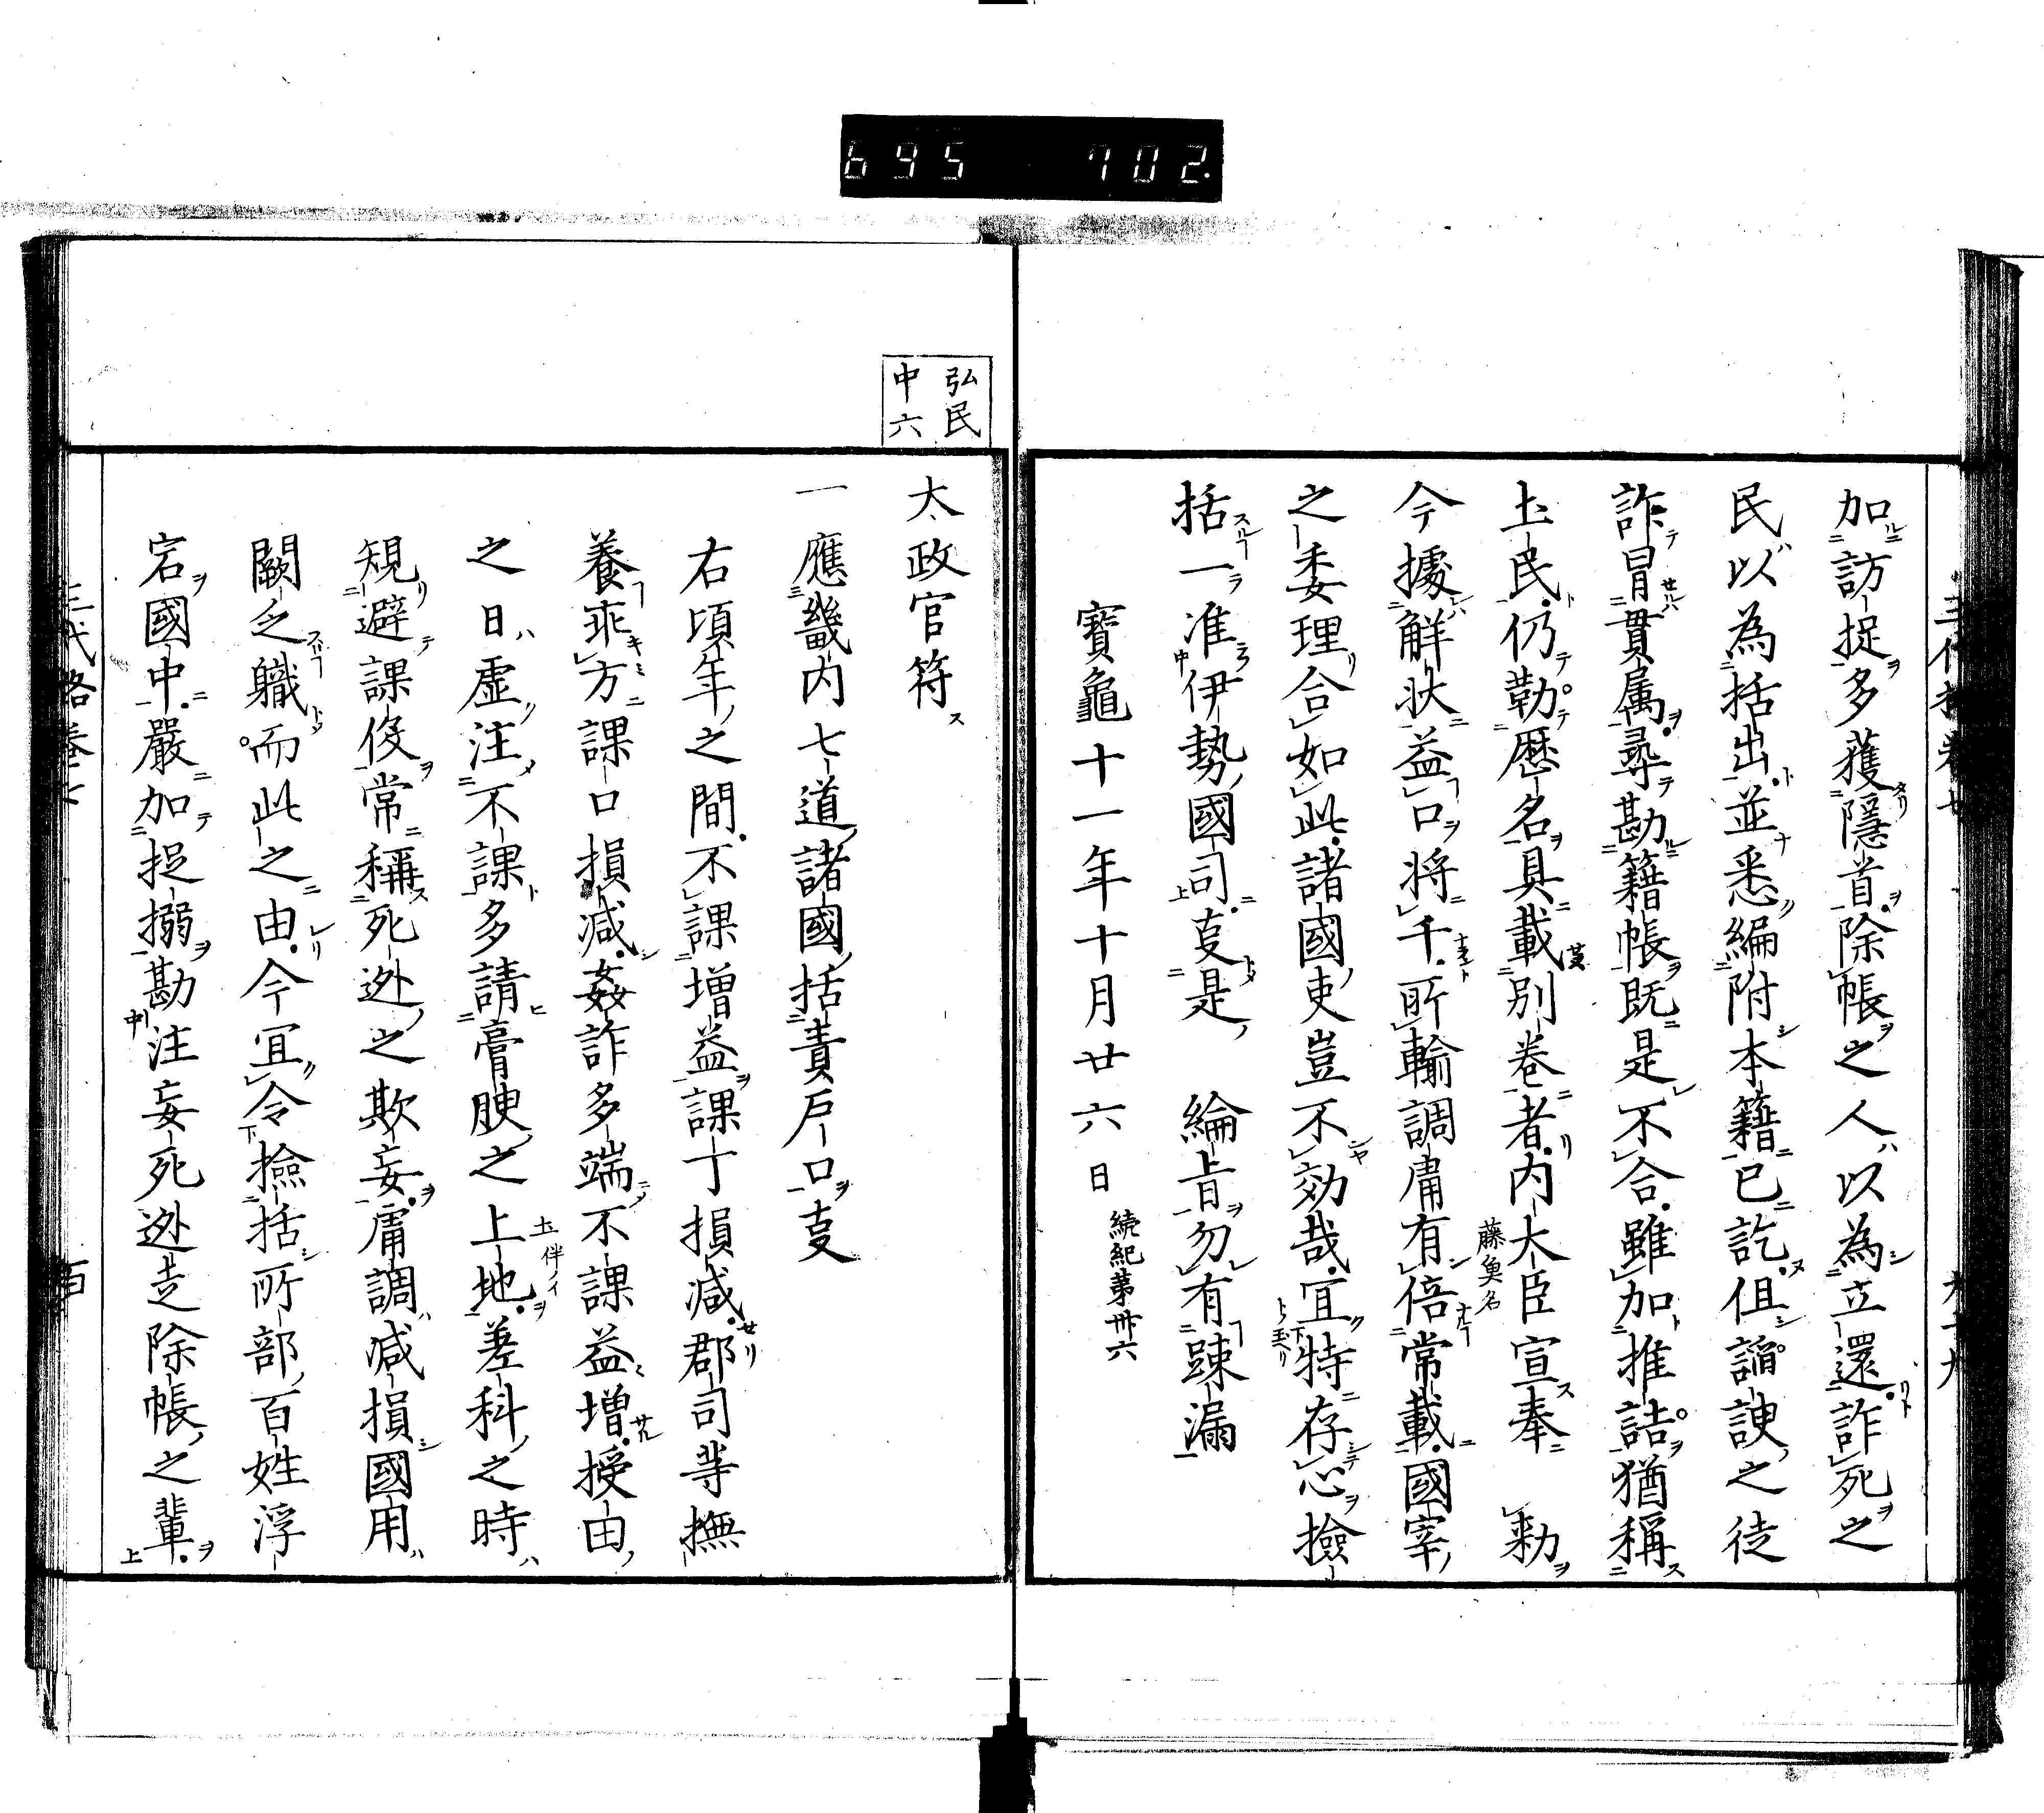 695 702.
加訪捉多獲隱首除帳之人以為立還詐死之
民以為括出並悉編附本籍已訖但謟諛之徒
詐冒貫属尋勘籍帳既是不合雖加推詰猶稱
土民仍勒歴名具載別卷者内大臣宣奉 勅
藤奠名
今據觧状益口将千所輸調庸有倍常載國宰
之委理合如此諸國吏豈不効哉宜特存心撿
括一准伊勢國司㕝是 綸旨勿有踈漏
寳龜十一年十月廿六日 続紀第卅六
弘民
中六
太政官符
一應畿内七道諸國括責戸口㕝
右頃年之間不課増益課丁損减郡司等撫
養乖方課口損减姦詐多端不課益増授田
之日虚注不課多請膏腴之上地差科之時
規避課伇常稱死迯之欺妄庸調减損國用
闕乏職而此之由今宜令撿括所部百姓浮
宕國中嚴加捉搦勘注妄死迯走除帳之輩